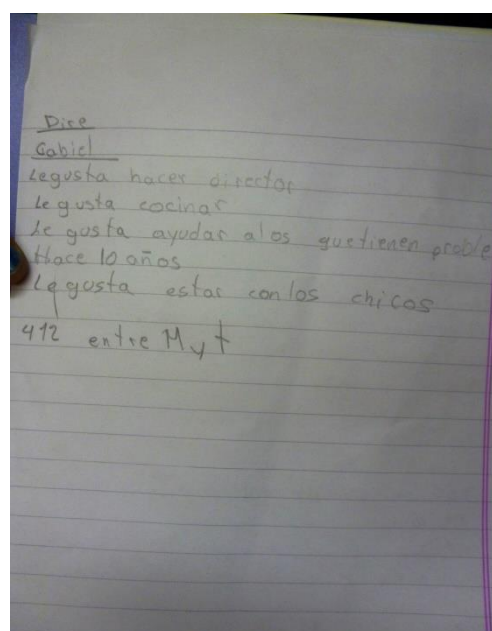 Dice
Gabiel
Legusta hacer director
Le gusta cocinar
Le gusta ayudar alos quetienen proble
Hace 10 años
Le gusta estar conlos chicos
412 entre M y t